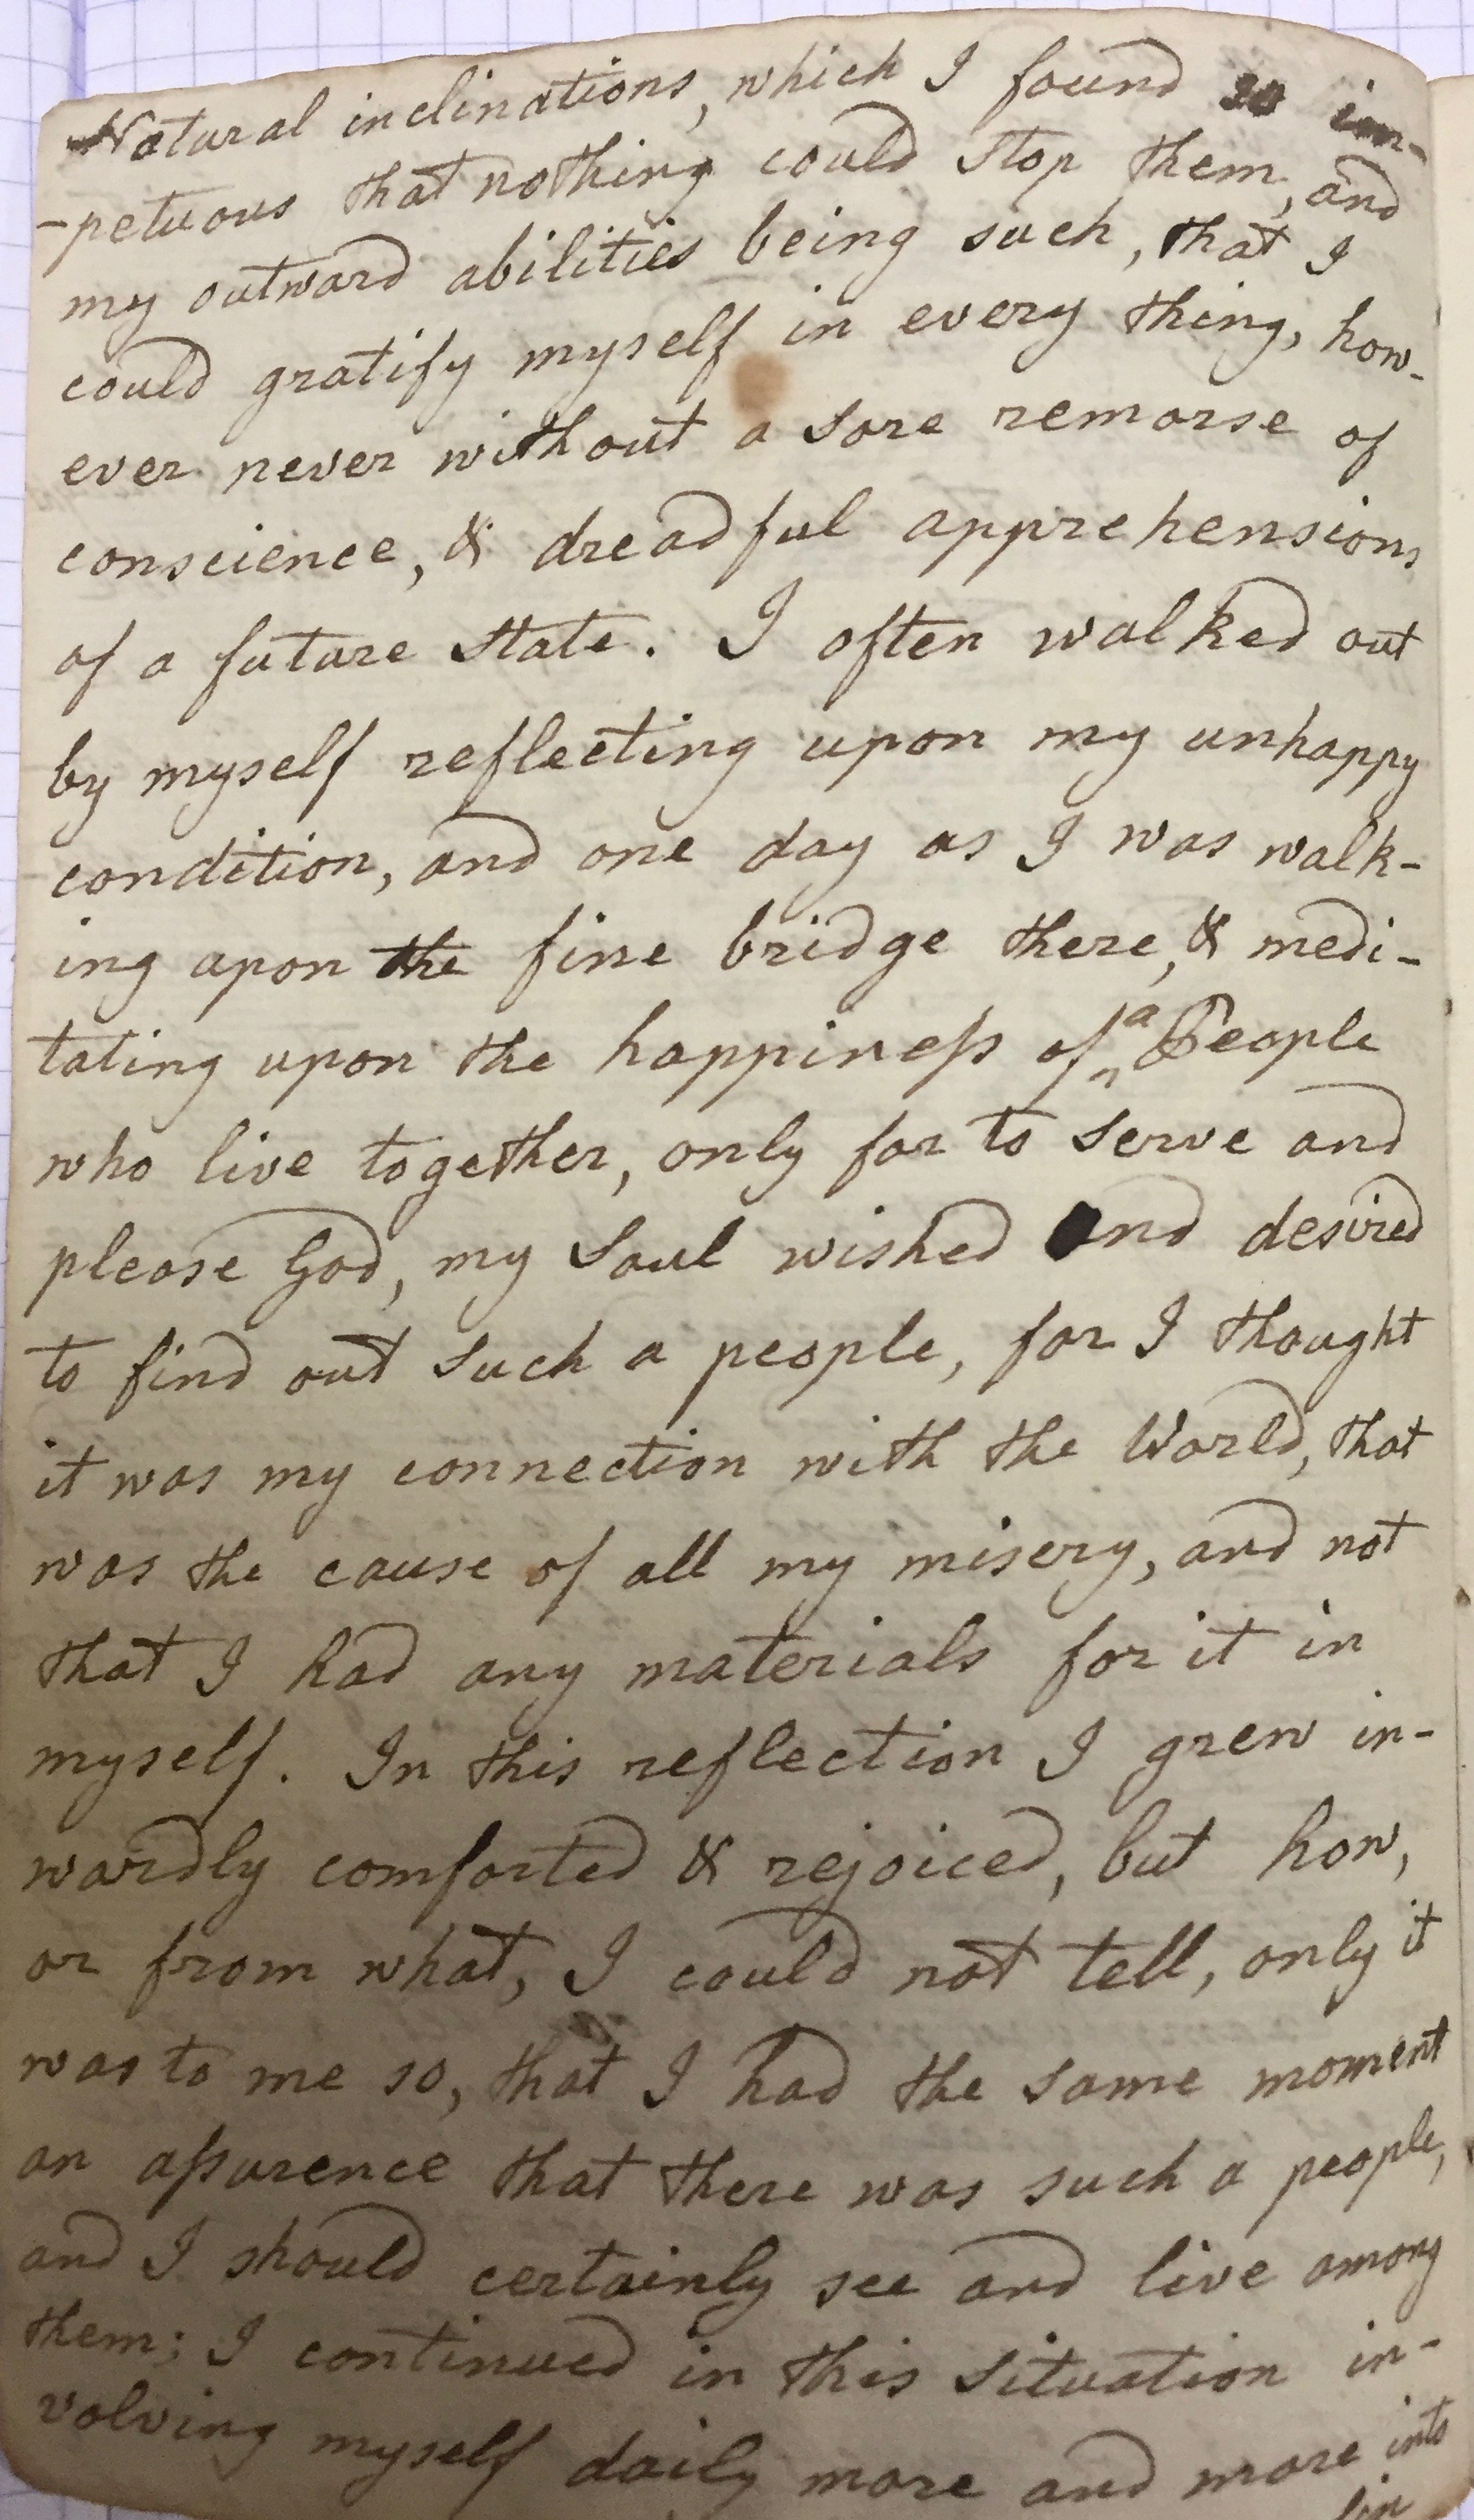 Natural inclinations, which I found so im-
-petuous that nothing could stop them, and
my outward abilities being such, that I
could gratify myself in every thing, how-
ever never without a sore remorse of
conscience, & dreadful apprehensions
of a future state. I often walked out
by myself reflecting upon my unhappy
condition, and one day as I was walk-
ing upon the fine bridge there, & medi-
tating upon the happiness of a People
who live together, only for to serve and
please God, my Soul wished and desired
to find out such a people, for I thought
it was my connection with the World, that
was the cause of all my misery, and not
that I had any materials for it in
myself. In this reflection I grew in-
wardly comforted & rejoiced, but how,
or from what, I could not tell, only it
was to me so, that I had the same moment
an assurence that there was such a people,
and I should certainly see and live among
them; I continued in this situation in-
volving myself daily more and more into
sin